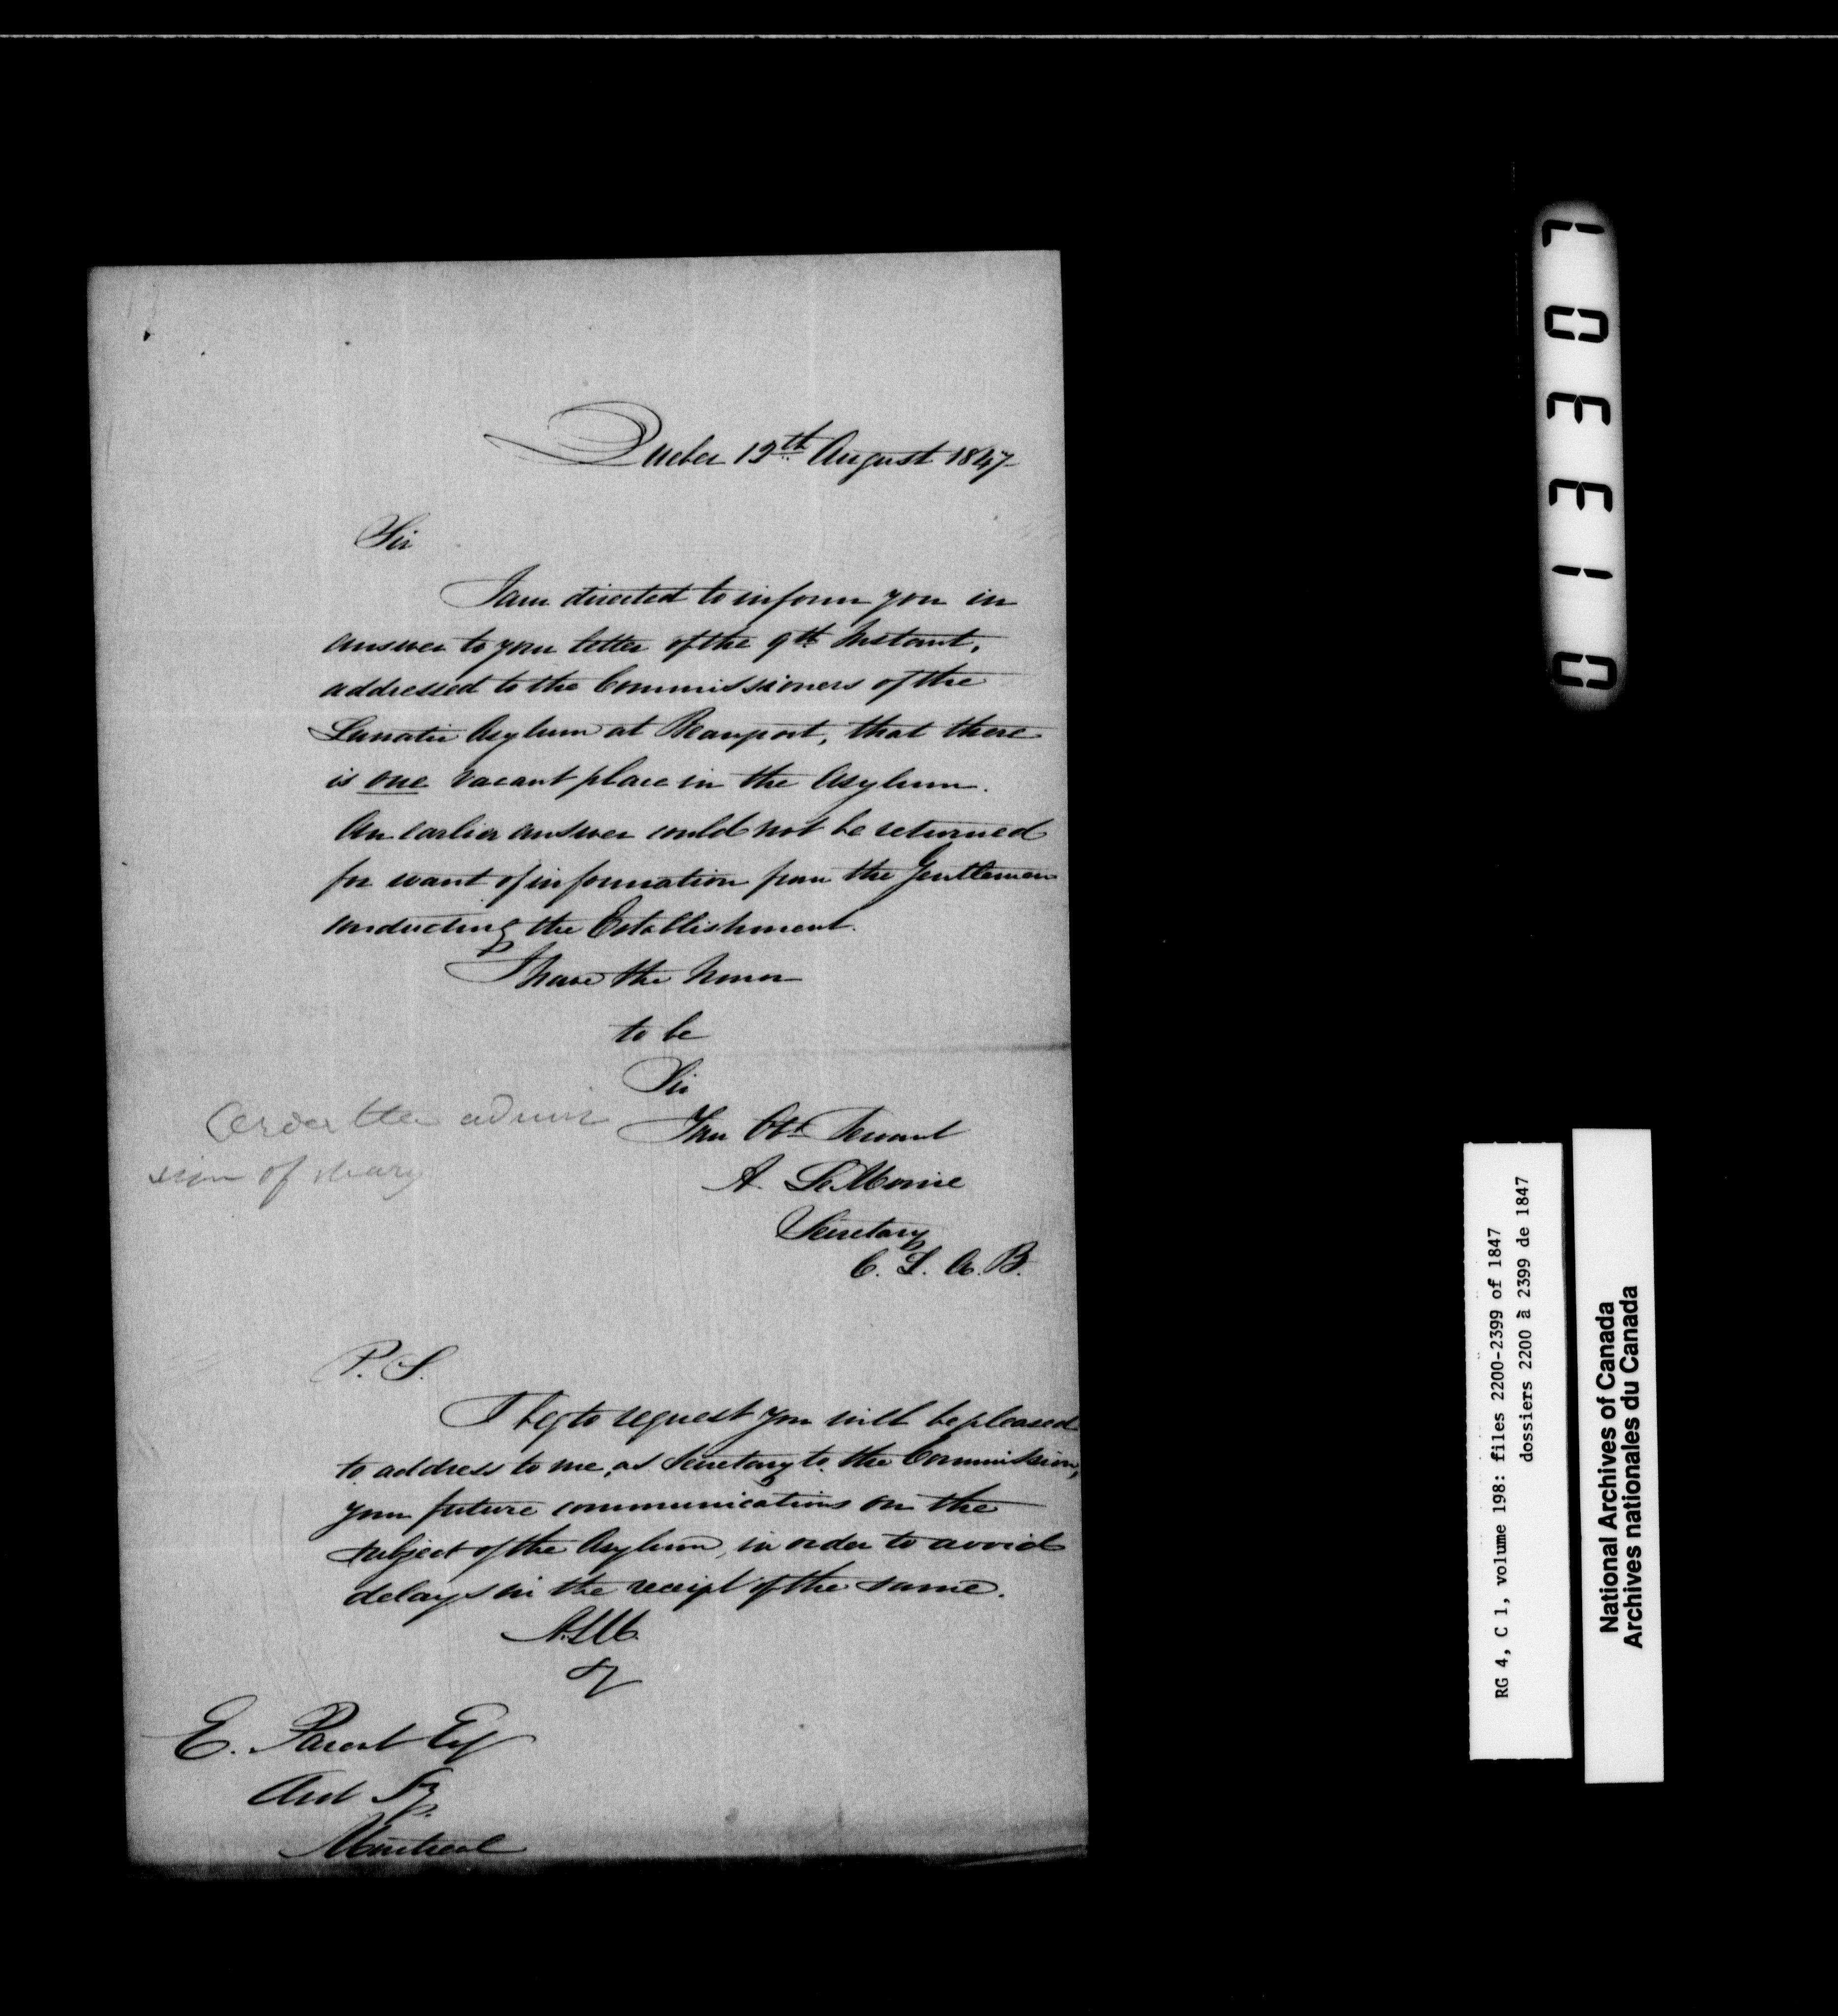 Quebec 19th August 1847
Sir
I am directed to inform you in
answer to your letter of the 9th Instant,
addressed to the Commissioners of the
Lunatic Asylum at Beauport, that there
is one vacant place in the Asylum.
An earlier answer could not be returned
for want of information from the Gentlemen
conducting the Establishment.
I have the honor
to be
Sir
Your Obt Servant
A. LeMoine
Secretary
C. L. A. B.
Order the admis
sion of Mary
P. S.
I beg to request you will be pleased
to address to me, as Secretary to the Commission,
your future communications on the
subject of the Asylum, in order to avoid
delays in the receipt of the same.
A. LM.
Sy
E. Parent Esq
Asst Sy.
Montreal
013307
RG 4, C 1, volume 198: files 2200-2399 of 1847
dossiers 2200 à 2399 de 1847
National Archives of Canada
Archives nationales du Canada